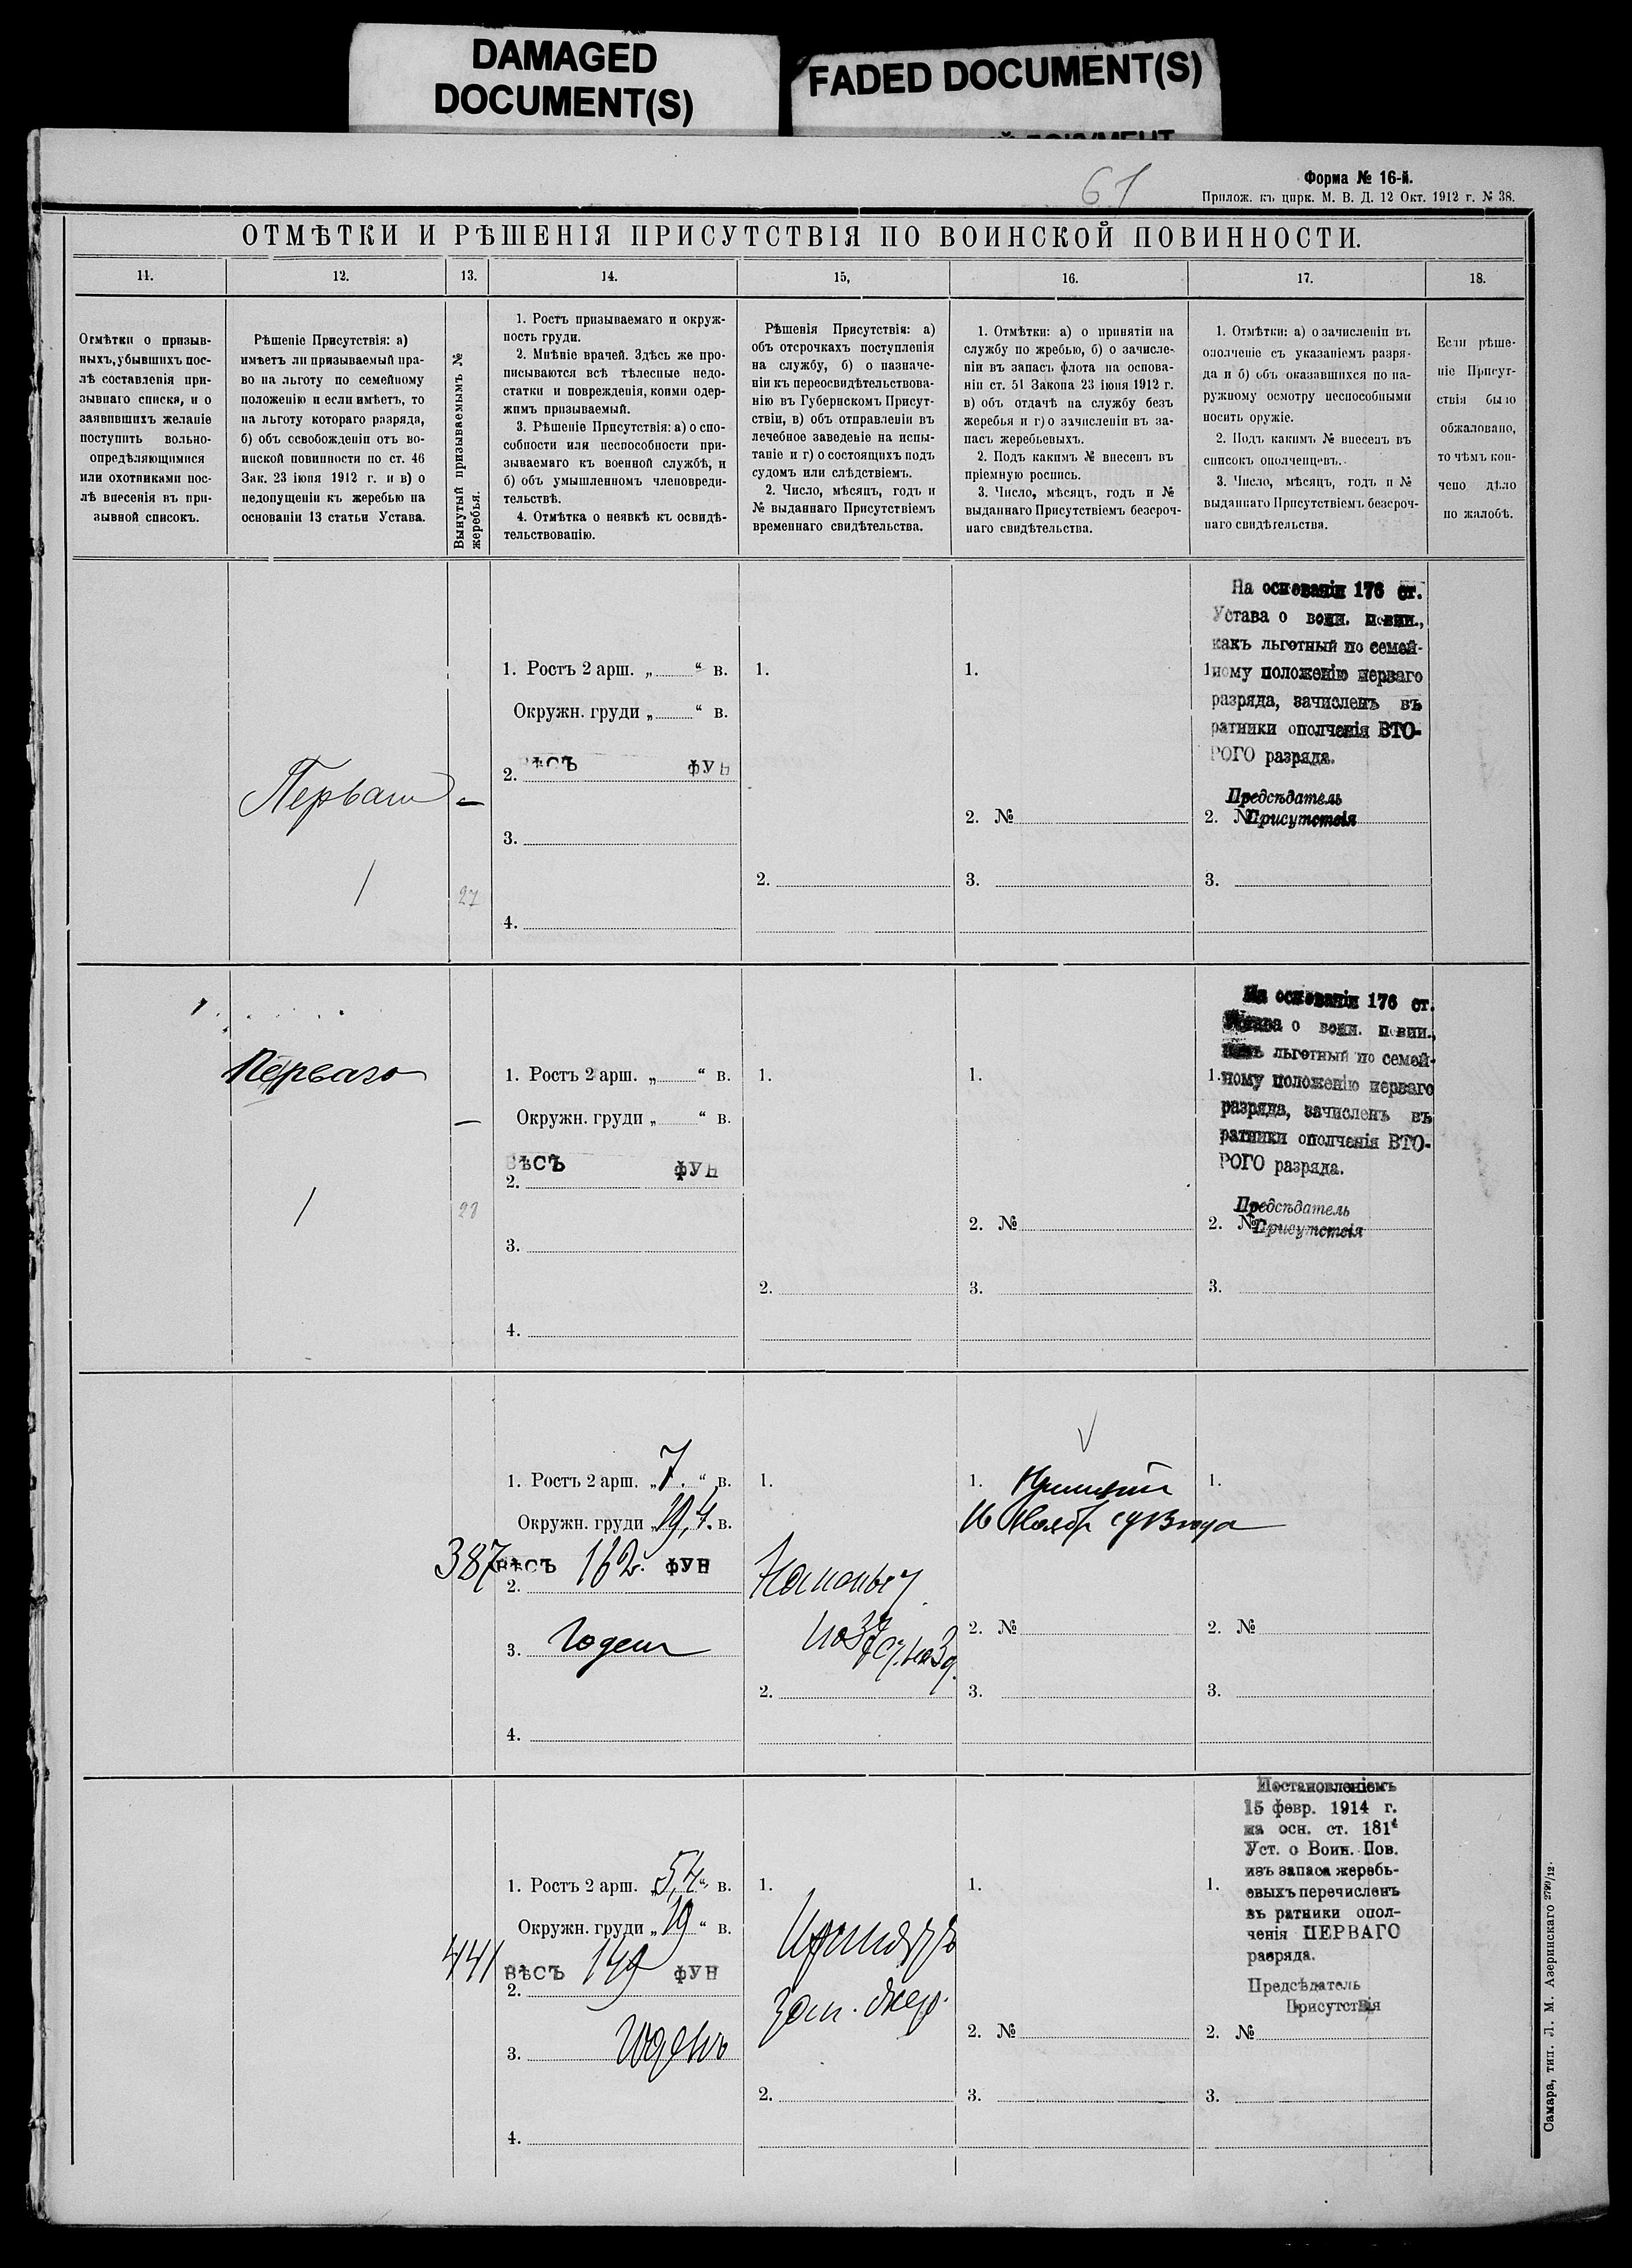 DAMAGED
DOCUMENT(S)
FADED DOCUMENT(S)
61
Форма № 16-й.
Прилож. къ цирк. М. В. Д. 12 Окт. 1912 г. № 38.
ОТМѢТКИ И РѢШЕНІЯ ПРИСУТСТВІЯ ПО ВОИНСКОЙ ПОВИННОСТИ.
11.
12.
13.
14.
15,
16.
17.
18.
Отмѣтки о призыв-
ныхъ, убывшихъ пос-
лѣ составленія при-
зывнаго списка, и о
заявившихъ желаніе
поступить вольно-
опредѣляющимися
или охотниками пос-
лѣ внесенія въ при-
зывной списокъ.
Рѣшеніе Присутствія: а)
имѣетъ ли призываемый пра-
во на льготу по семейному
положенію и если имѣетъ, то
на льготу котораго разряда,
б) объ освобожденіи отъ во-
инской повинности по ст. 46
Зак. 23 іюня 1912 г. и в) о
недопущеніи къ жеребью на
основаніи 13 статьи Устава.
Вынутый призываемымъ №
жеребья.
1. Ростъ призываемаго и окруж-
ность груди.
2. Мнѣніе врачей. Здѣсь же про-
писываются всѣ тѣлесные недо-
статки и поврежденія, коими одер-
жимъ призываемый.
3. Рѣшеніе Присутствія: а) о спо-
собности или неспособности при-
зываемаго къ военной службѣ, и
б) объ умышленномъ членовреди-
тельствѣ.
4. Отмѣтка о неявкѣ къ освидѣ-
тельствованію.
Рѣшенія Присутствія: а)
объ отсрочкахъ поступленія
на службу, б) о назначе-
ніи къ переосвидѣтельствова-
нію въ Губернскомъ Присут-
ствіи, в) объ отправленіи въ
лечебное заведеніе на испы-
таніе и г) о состоящихъ подъ
судомъ или слѣдствіемъ.
2. Число, мѣсяцъ, годъ и
№ выданнаго Присутствіемъ
временнаго свидѣтельства.
1. Отмѣтки: а) о принятіи на
службу по жребью, б) о зачисле-
ніи въ запасъ флота на основа-
ніи ст. 51 Закона 23 іюня 1912 г.
в) объ отдачѣ на службу безъ
жеребья и г) о зачисленіи въ за-
пасъ жеребьевыхъ.
2. Подъ какимъ № внесенъ въ
пріемную роспись.
3. Число, мѣсяцъ, годъ и №
выданнаго Присутствіемъ безсроч-
наго свидѣтельства.
1. Отмѣтки: а) о зачисленіи въ
ополченіе съ указаніемъ разря-
да и б) объ оказавшихся по на-
ружному осмотру неспособными
носить оружіе.
2. Подъ какимъ № внесенъ въ
списокъ ополченцевъ.
3. Число, мѣсяцъ, годъ и №
выданнаго Присутствіемъ безсроч-
наго свидѣтельства.
Если рѣше-
ніе Присут-
ствія было
обжаловано,
то чѣмъ кон-
чено дѣло
по жалобѣ.
Перваго
—
1
27
1. Ростъ 2 арш. „ “ в.
Окружн. груди „ “ в.
ВѢСЪ ФУН
2.
3.
4.
1.
2.
1.
2. №
3.
На основаніи 176 ст.
Устава о воин. повин.,
какъ льготный по семей-
1. ному положенію перваго
разряда, зачисленъ въ
ратники ополченія ВТО-
РОГО разряда.
Предсѣдатель
2. № Присутствія
3.
Перваго
—
1
28
1. Ростъ 2 арш. „ “ в.
Окружн. груди „ “ в.
ВѢСЪ ФУН
2.
3.
4.
1.
2.
1.
2. №
3.
На основаніи 176 ст.
Устава о воин. повин.,
какъ льготный по семей-
1. ному положенію перваго
разряда, зачисленъ въ
ратники ополченія ВТО-
РОГО разряда.
Предсѣдатель
2. № Присутствія
3.
387
1. Ростъ 2 арш. „7 “ в.
Окружн. груди „19,4. в.
ВѢСЪ 162 ФУН
2.
3. Годенъ
4.
1.
2.
1.
16 Ноября
2. №
3.
1.
2. №
3.
441
1. Ростъ 2 арш. „5,4 “ в.
Окружн. груди „19 “ в.
ВѢСЪ 149 ФУН
2.
3. Годенъ
4.
1.
зап. жер.
2.
1.
2. №
3.
Постановленіемъ
15 февр. 1914 г.
на осн. ст. 181⁴
Уст. о Воин. Пов.
изъ запаса жеребь-
1. евыхъ перечисленъ
въ ратники опол-
ченія ПЕРВАГО
разряда.
Предсѣдатель
Присутствія
2. №
3.
Самара, тип. Л. М. Азеринскаго 2799/12.